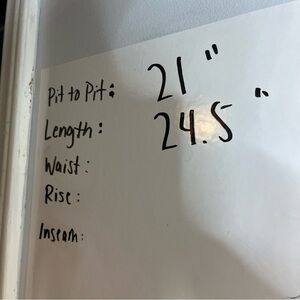 Pit to Pit: 21"
Length: 24.5"
Waist:
Rise:
Inseam: